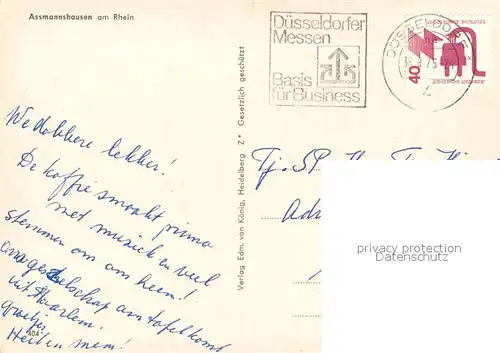 Assmannshausen am Rhein
Düsseldorfer
Messen
Basis
für Business
DÜSSELDORF
40
We dobbere lekker!
De koffie smaakt prima
met muziek en veel
stemmen om ons heen!
Ons gezelschap aan tafel komt
uit Haarlem.
groetjes
Heit en mem!
404
Verlag Edm. von König, Heidelberg Z* Gesetzlich geschützt
privacy protection
Datenschutz